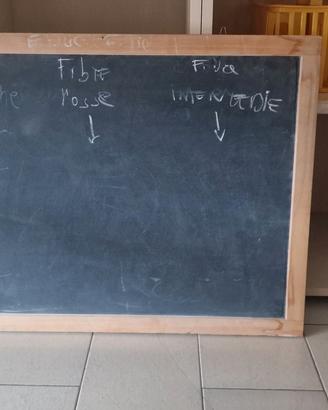 Fibre
rosse
Fibre
INTERMEDIE